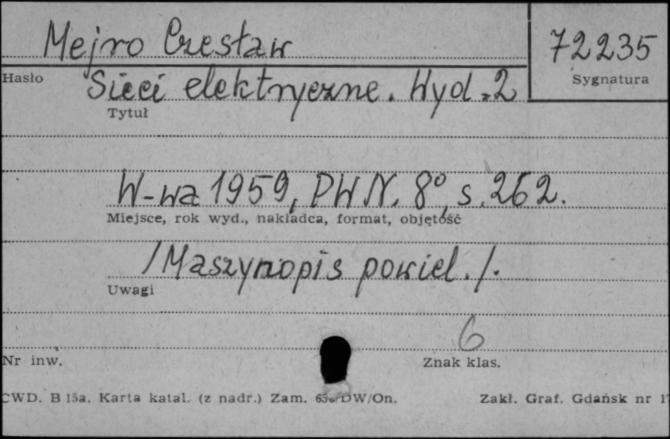 Mejro Czesław 72235
Hasło Sygnatura
Sieci elektryczne. Wyd. 2
Tytuł
W-wa 1959, PWN. 8°, s. 262.
Miejsce, rok wyd., nakładca, format, objętość
/Maszynopis powiel./.
Uwagi
6
Nr inw. Znak klas.
CWD. B 15a. Karta katal. (z nadr.) Zam. DW/On. Zakł. Graf. Gdańsk nr